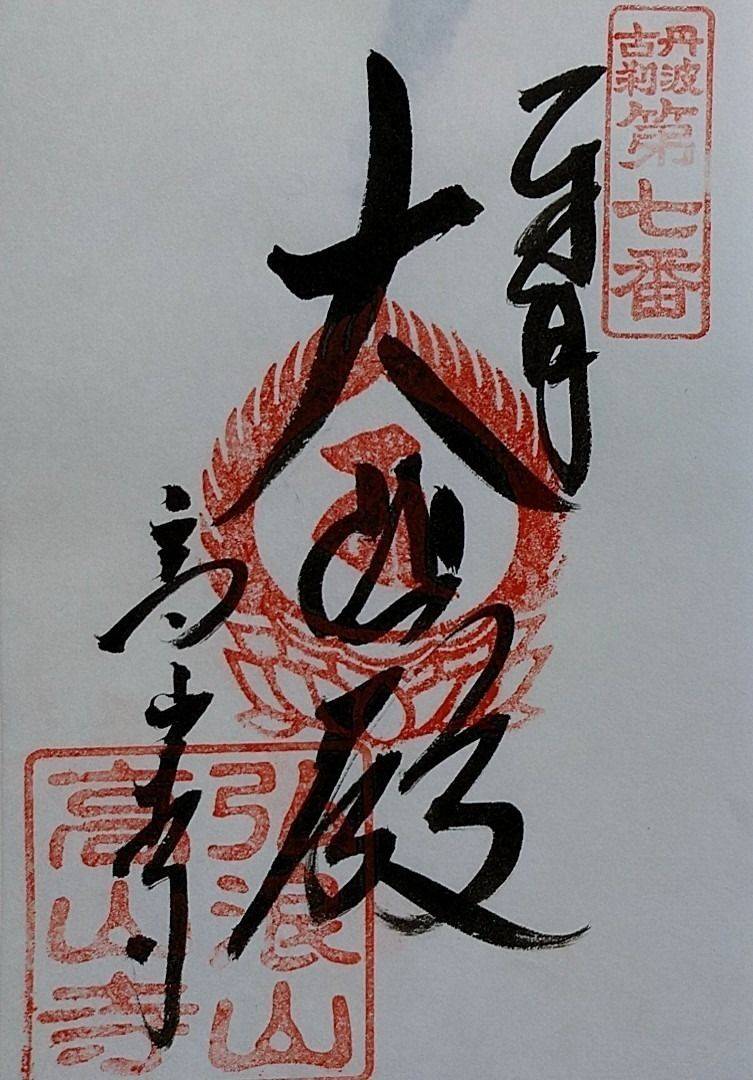 丹波
古刹
第七番
大悲殿
高山寺
弘浪山
高山寺